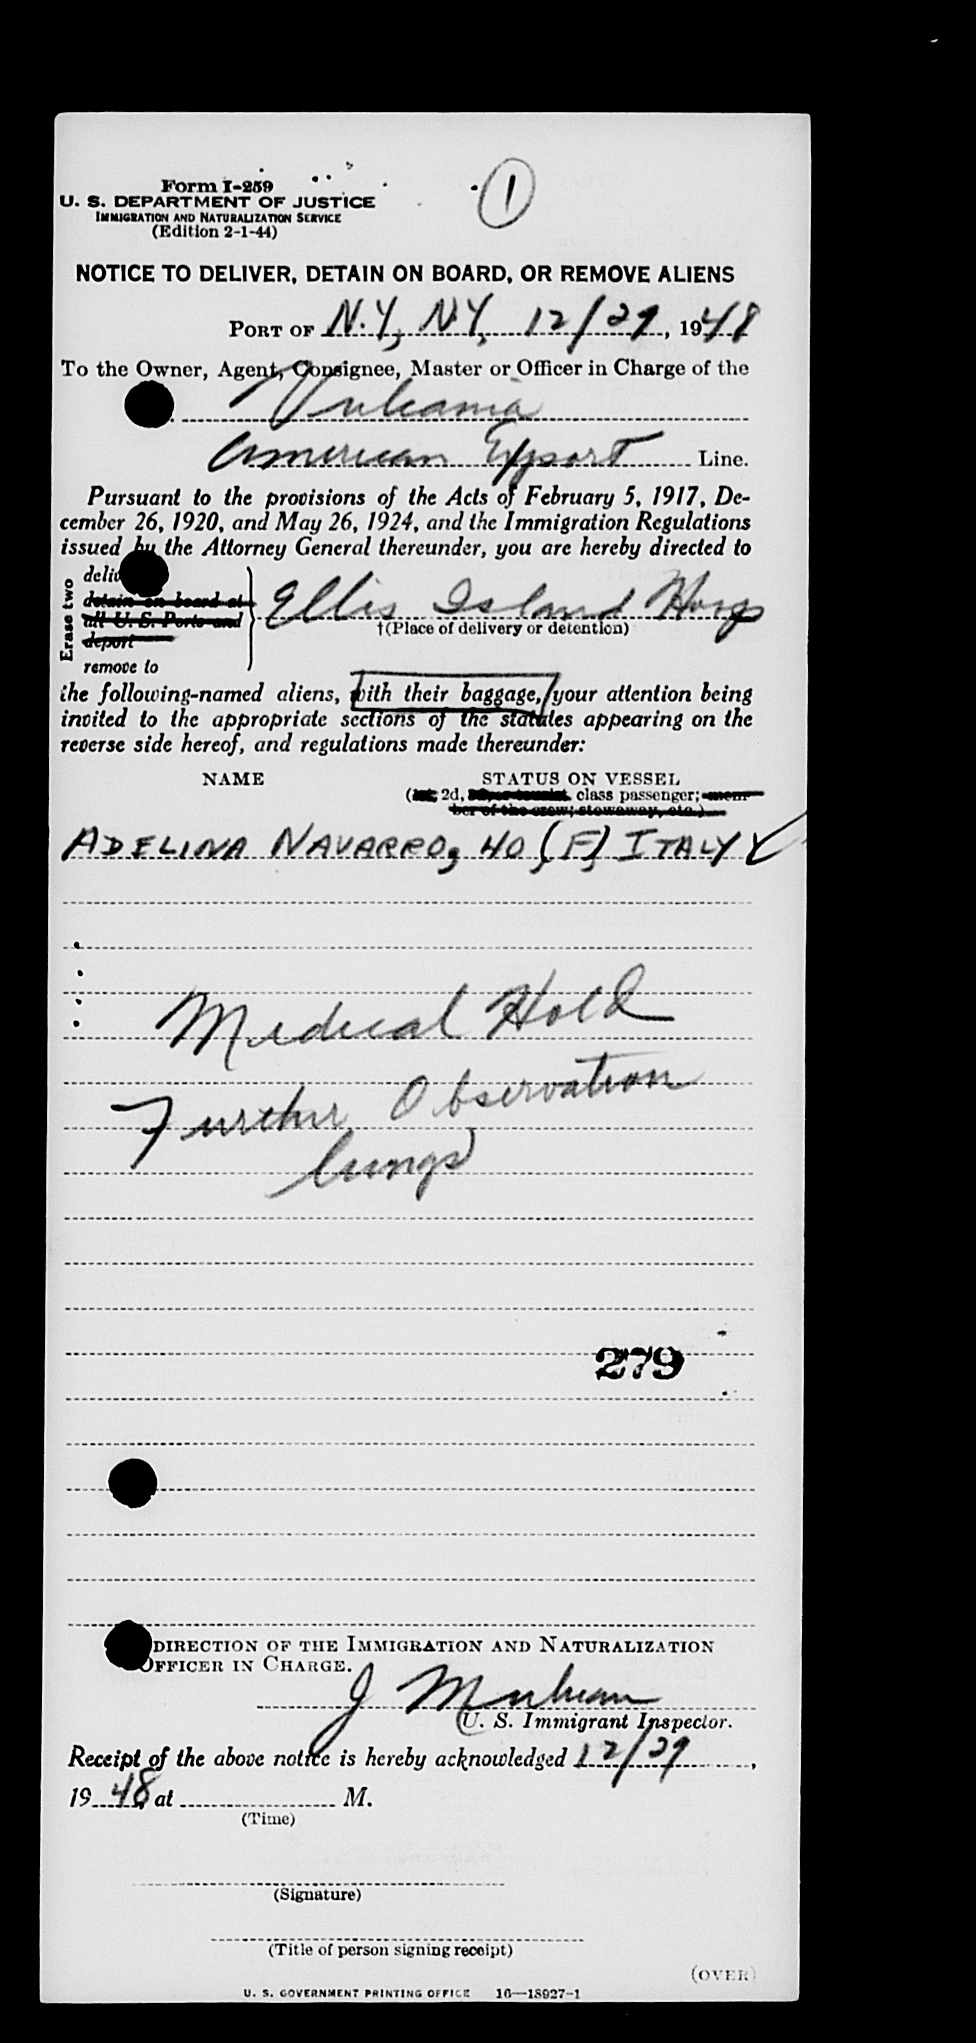 Form I-259
1
U. S. DEPARTMENT OF JUSTICE
IMMIGRATION AND NATURALIZATION SERVICE
(Edition 2-1-44)
NOTICE TO DELIVER, DETAIN ON BOARD, OR REMOVE ALIENS
PORT OF N.Y., N.Y., 12/29, 1948
To the Owner, Agent, Consignee, Master or Officer in Charge of the
Vulcania
American Export Line.
Pursuant to the provisions of the Acts of February 5, 1917, De-
cember 26, 1920, and May 26, 1924, and the Immigration Regulations
issued by the Attorney General thereunder, you are hereby directed to
Erase two
deliv
detain on board at
all U. S. Ports and
deport
remove to
Ellis Island Hosp
†(Place of delivery or detention)
the following-named aliens, with their baggage, your attention being
invited to the appropriate sections of the statutes appearing on the
reverse side hereof, and regulations made thereunder:
NAME STATUS ON VESSEL
(1st, 2d, class passenger; mem-
ber of the crew; stowaway, etc.)
ADELINA NAVARRO, 40 (F) ITALY ✓
Medical Hold
Further Observation
lungs
279
DIRECTION OF THE IMMIGRATION AND NATURALIZATION
OFFICER IN CHARGE.
J
U. S. Immigrant Inspector.
Receipt of the above notice is hereby acknowledged 12/29,
1948, at M.
(Time)
(Signature)
(Title of person signing receipt)
(OVER)
U. S. GOVERNMENT PRINTING OFFICE 16—18927-1